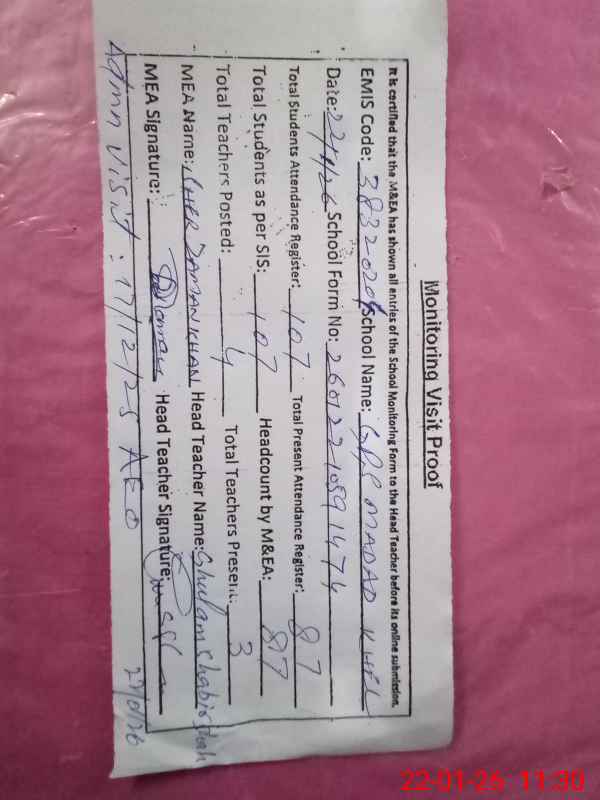 Monitoring Visit Proof
It is certified that the M&EA has shown all entries of the School Monitoring Form to the Head Teacher before its online submission.
EMIS Code: 38320204 School Name: GPS MADAD KHEL
Date: 22/1/26 School Form No: 26012210591474
Total Students Attendance Register: 107 Total Present Attendance Register: 87
Total Students as per SIS: 107 Headcount by M&EA: 87
Total Teachers Posted: 4 Total Teachers Present: 3
MEA Name: SHER ZAMAN KHAN Head Teacher Name: Ghulam Shabir Shah
MEA Signature: Head Teacher Signature:
Admn visit: 17/12/25 AEO
22-01-26 11:30